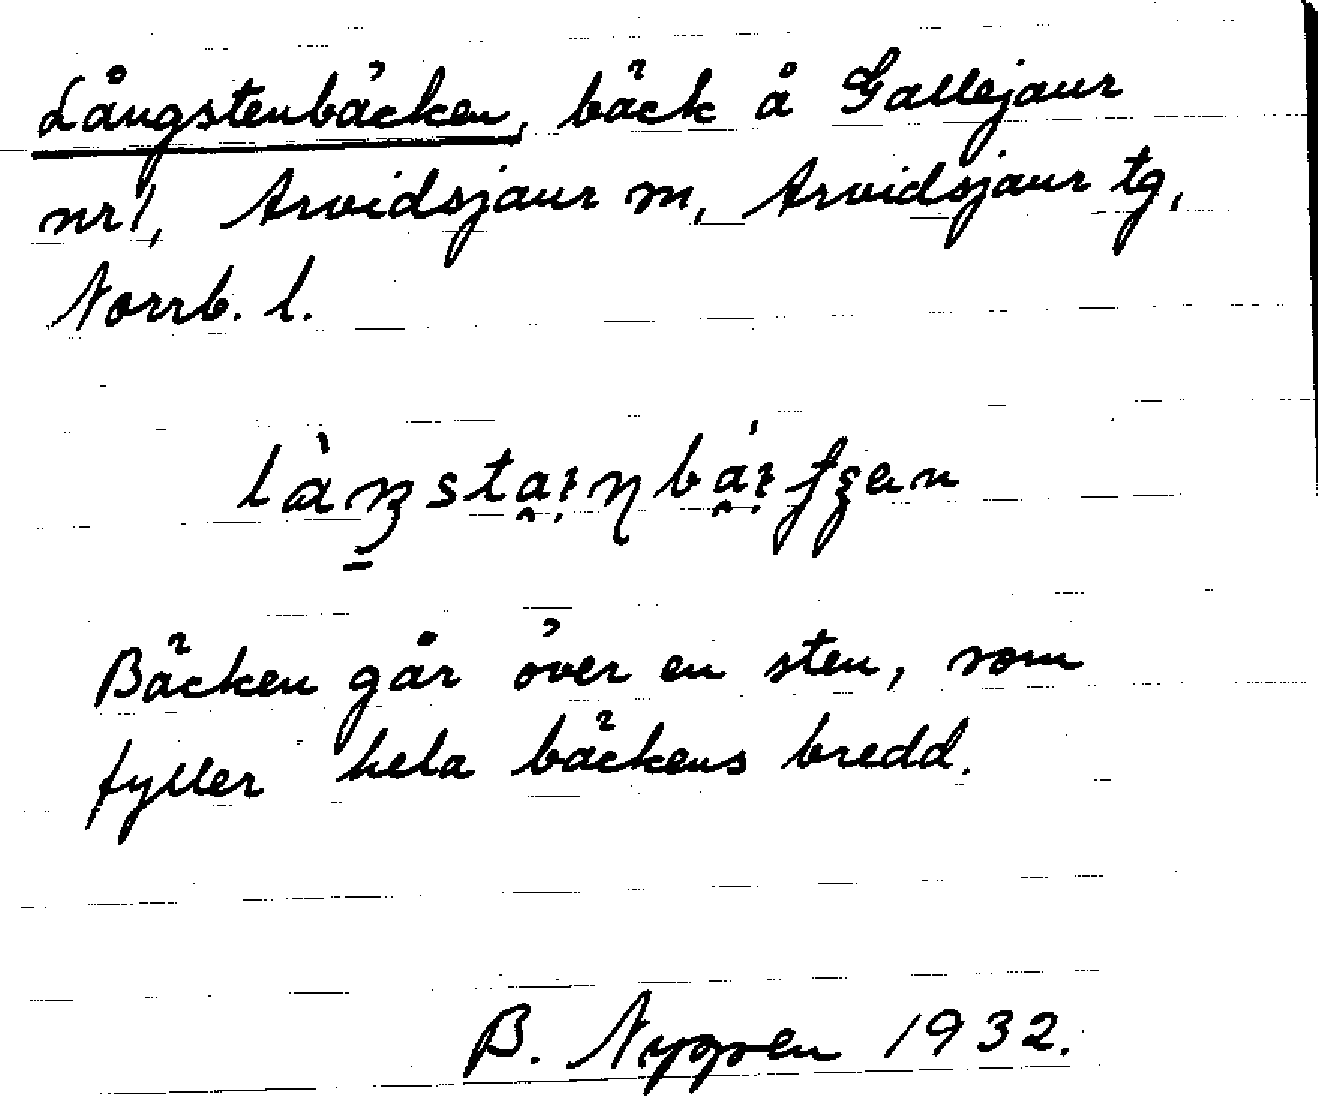 Långstenbäcken, bäck å Gallejaur
nr 1, Arvidsjaur sn, Arvidsjaur tg,
Norrb. l.
Bäcken går över en sten, som
fyller hela bäckens bredd.
B. Nygren 1932.